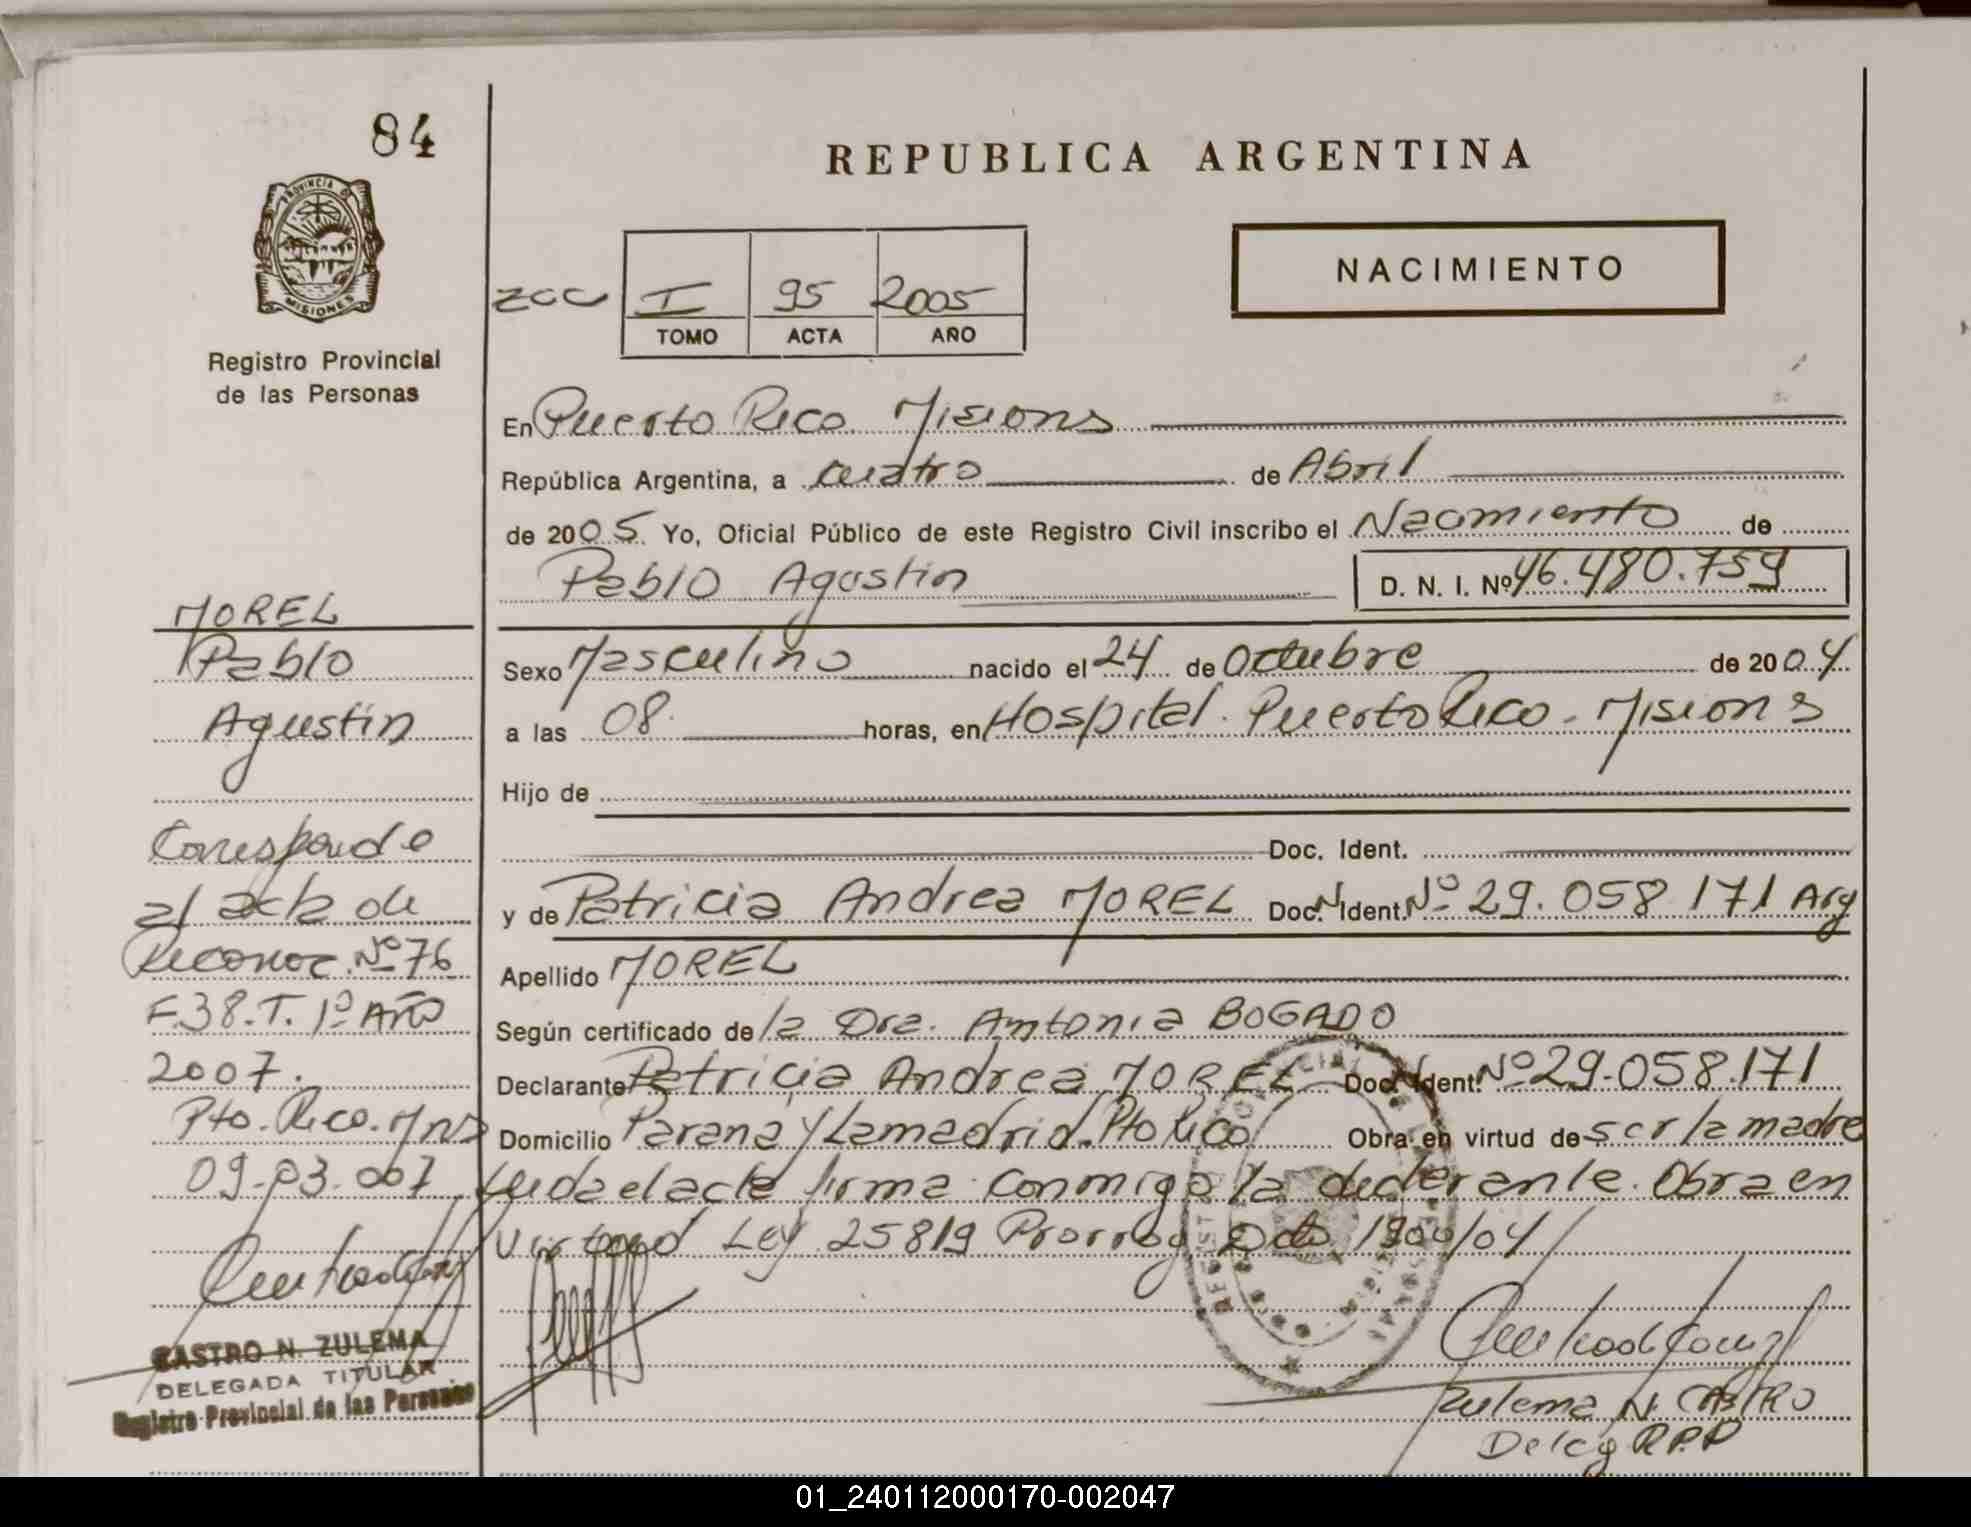 84
PROVINCIA DE
MISIONES
Registro Provincial
de las Personas
REPUBLICA ARGENTINA
NACIMIENTO
ZCC I 95 2005
TOMO ACTA AÑO
En Puerto Rico Misions
República Argentina, a cuatro de Abril
de 2005 Yo, Oficial Público de este Registro Civil inscribo el Nacimiento de
Pablo Agustin D. N. I. Nº 46.480.759
Sexo Masculino nacido el 24 de Octubre de 2004
a las 08. horas, en Hospital. Puerto Rico - Misions
Hijo de
Doc. Ident.
y de Patricia Andrea MOREL Doc. Ident. Nº 29.058 171 Arg
Apellido MOREL
Según certificado de la Dra. Antonia BOGADO
Declarante Patricia Andrea MOREL Doc. Ident. Nº 29.058.171
Domicilio Parana y Lamadrid. Pto Rico Obra en virtud de ser la madre
Leida el acta firma conmigo la declarante. Obra en
Virtud Ley 25819 Prorrog Dto 1900/04
Zulema N. CASTRO
Deleg RPP
MOREL
Pablo
Agustin
Corresponde
al acta de
Reconoc. Nº 76
F.38.T. 1º Año
2007.
Pto. Rico. Mns
09-03-007
CASTRO N. ZULEMA
DELEGADA TITULAR
Registro Provincial de las Personas
01_240112000170-002047